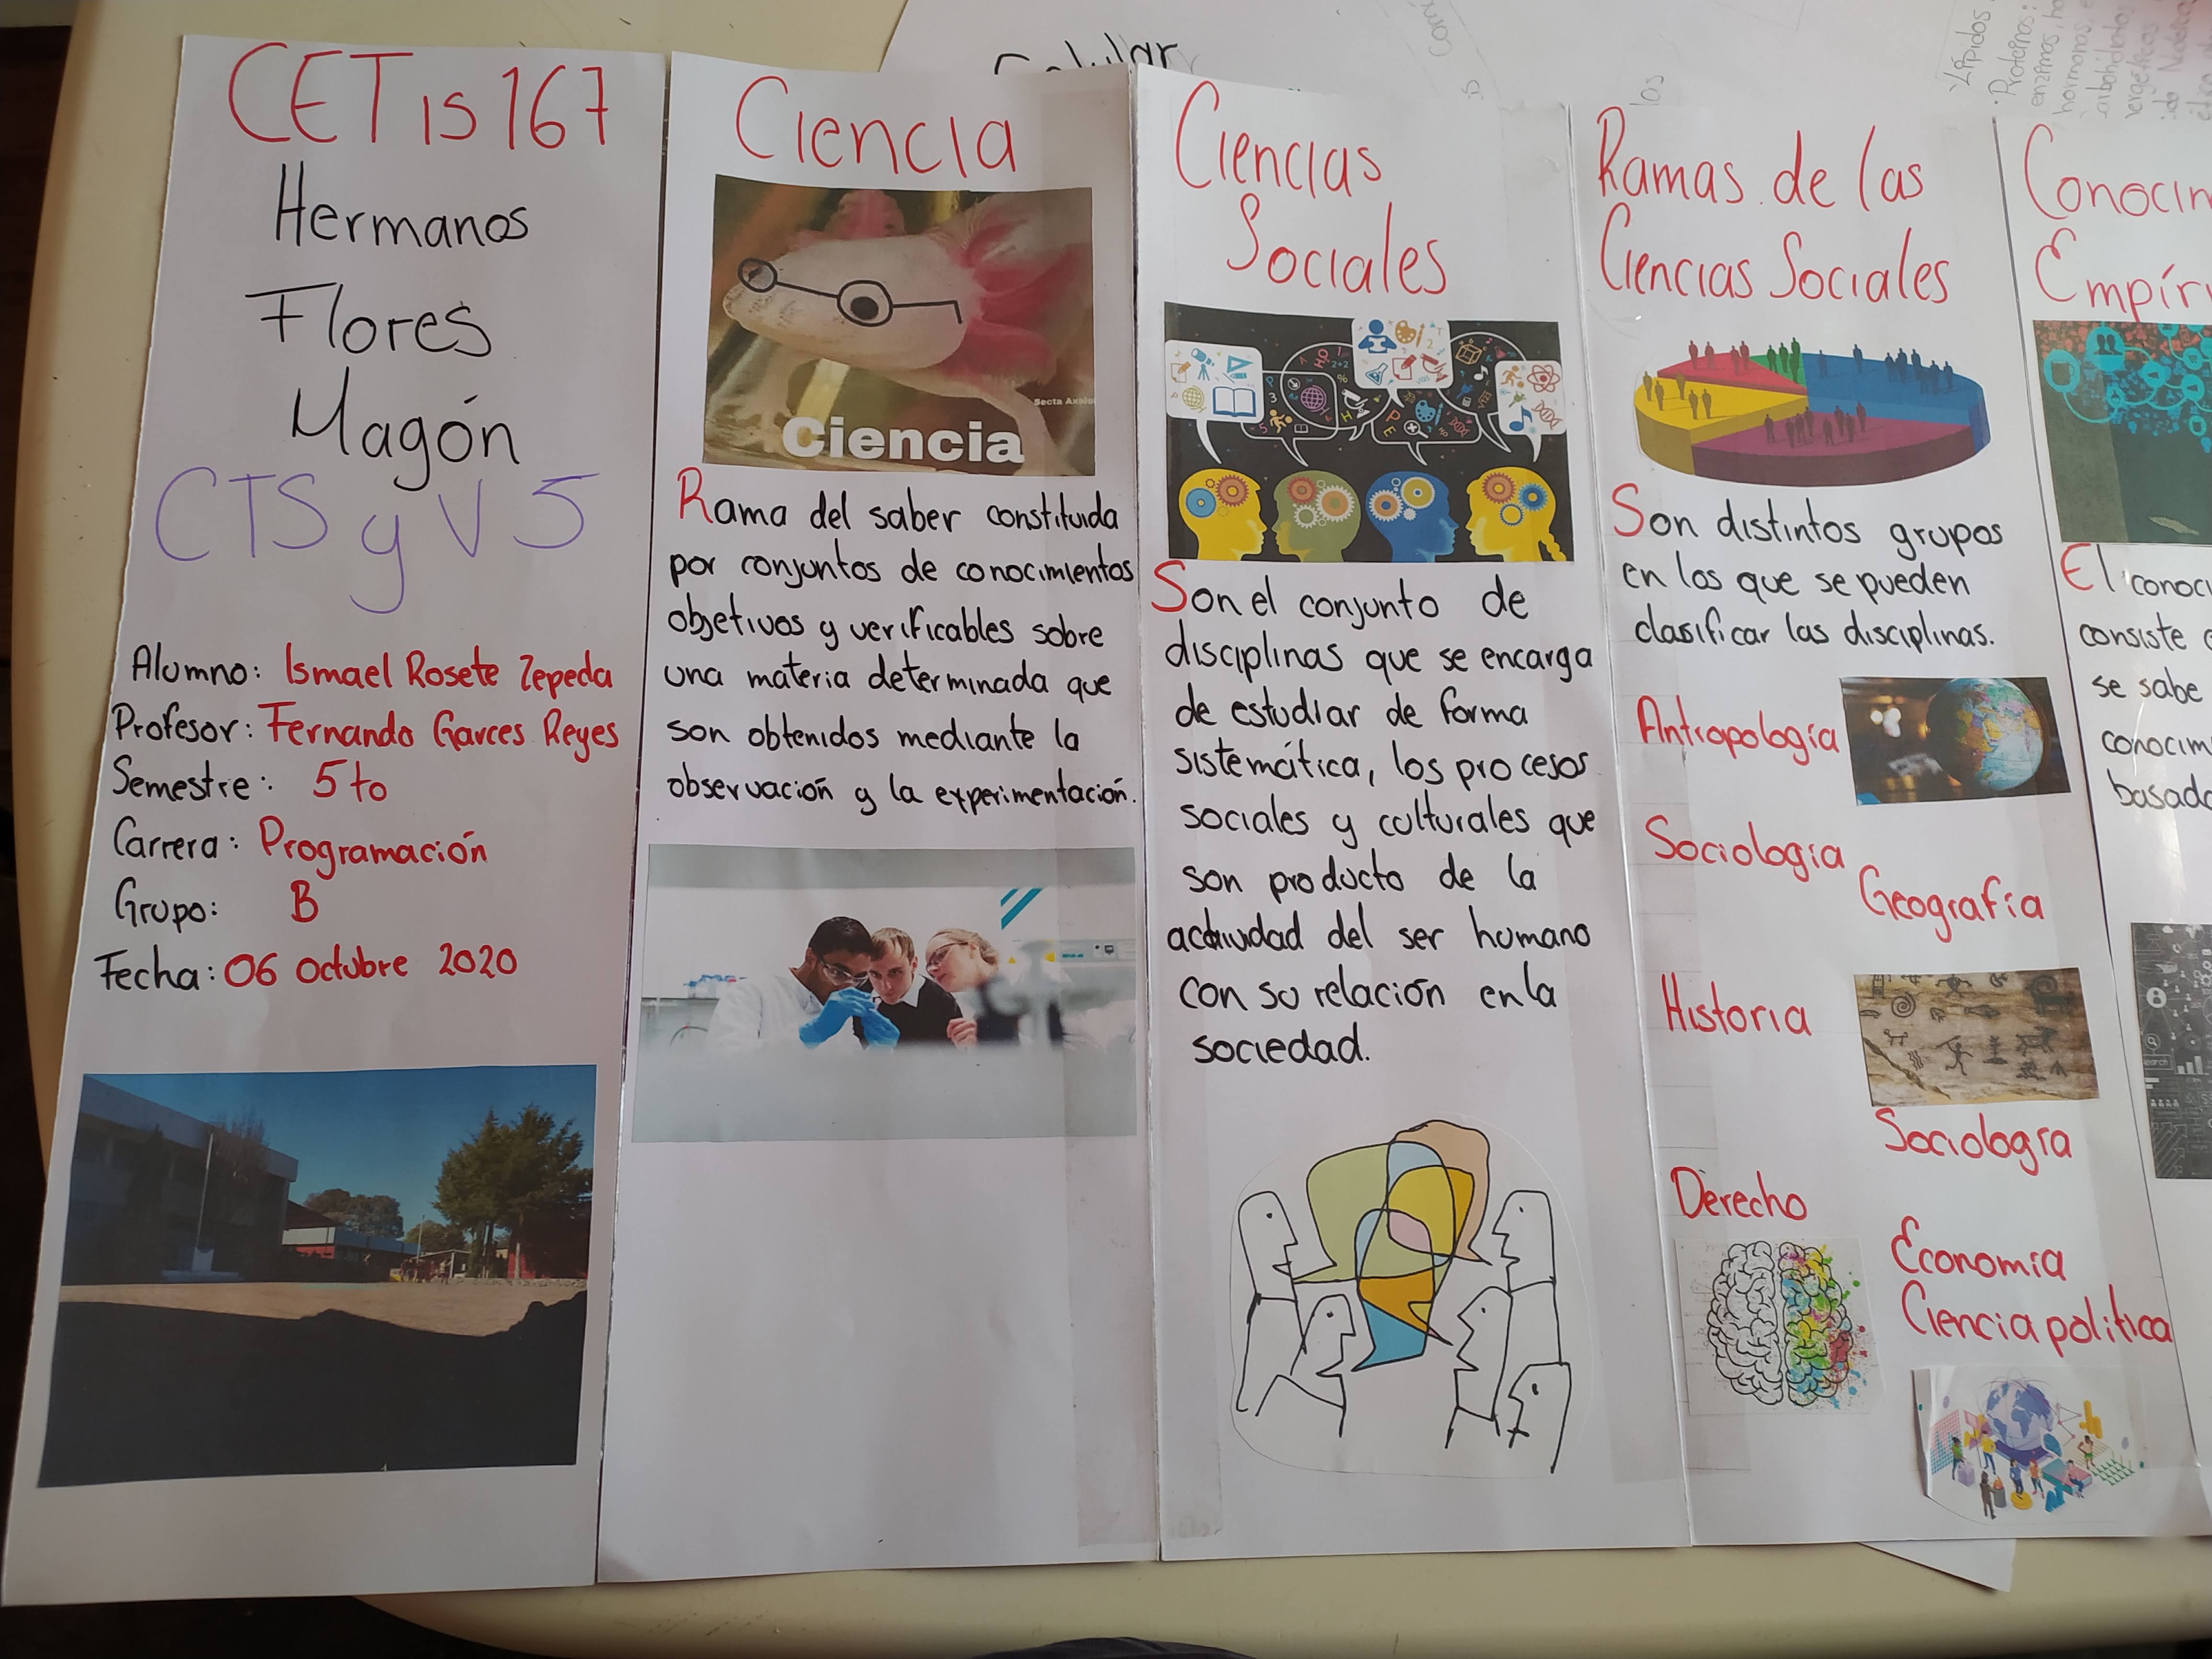 CETis 167
Hermanos
Flores
Magón
CTS y V 5
Alumno: Ismael Rosete Zepeda
Profesor: Fernando Garces Reyes
Semestre: 5to
Carrera: Programación
Grupo: B
Fecha: 06 Octubre 2020
Ciencia
Ciencia
Rama del saber constituida
por conjuntos de conocimientos
objetivos y verificables sobre
una materia determinada que
son obtenidos mediante la
observación y la experimentación.
Ciencias
Sociales
Son el conjunto de
disciplinas que se encarga
de estudiar de forma
sistemática, los procesos
sociales y culturales que
son producto de la
actividad del ser humano
con su relación en la
sociedad.
Ramas de las
Ciencias Sociales
Son distintos grupos
en los que se pueden
clasificar las disciplinas.
Antropología
Sociología
Geografía
Historia
Sociología
Derecho
Economía
Ciencia política
Conocim
Empír
El conoci
consiste
se sabe
conocim
basado
Celular
Lípidos
Proteínas:
enzimas, ho
hormonas,